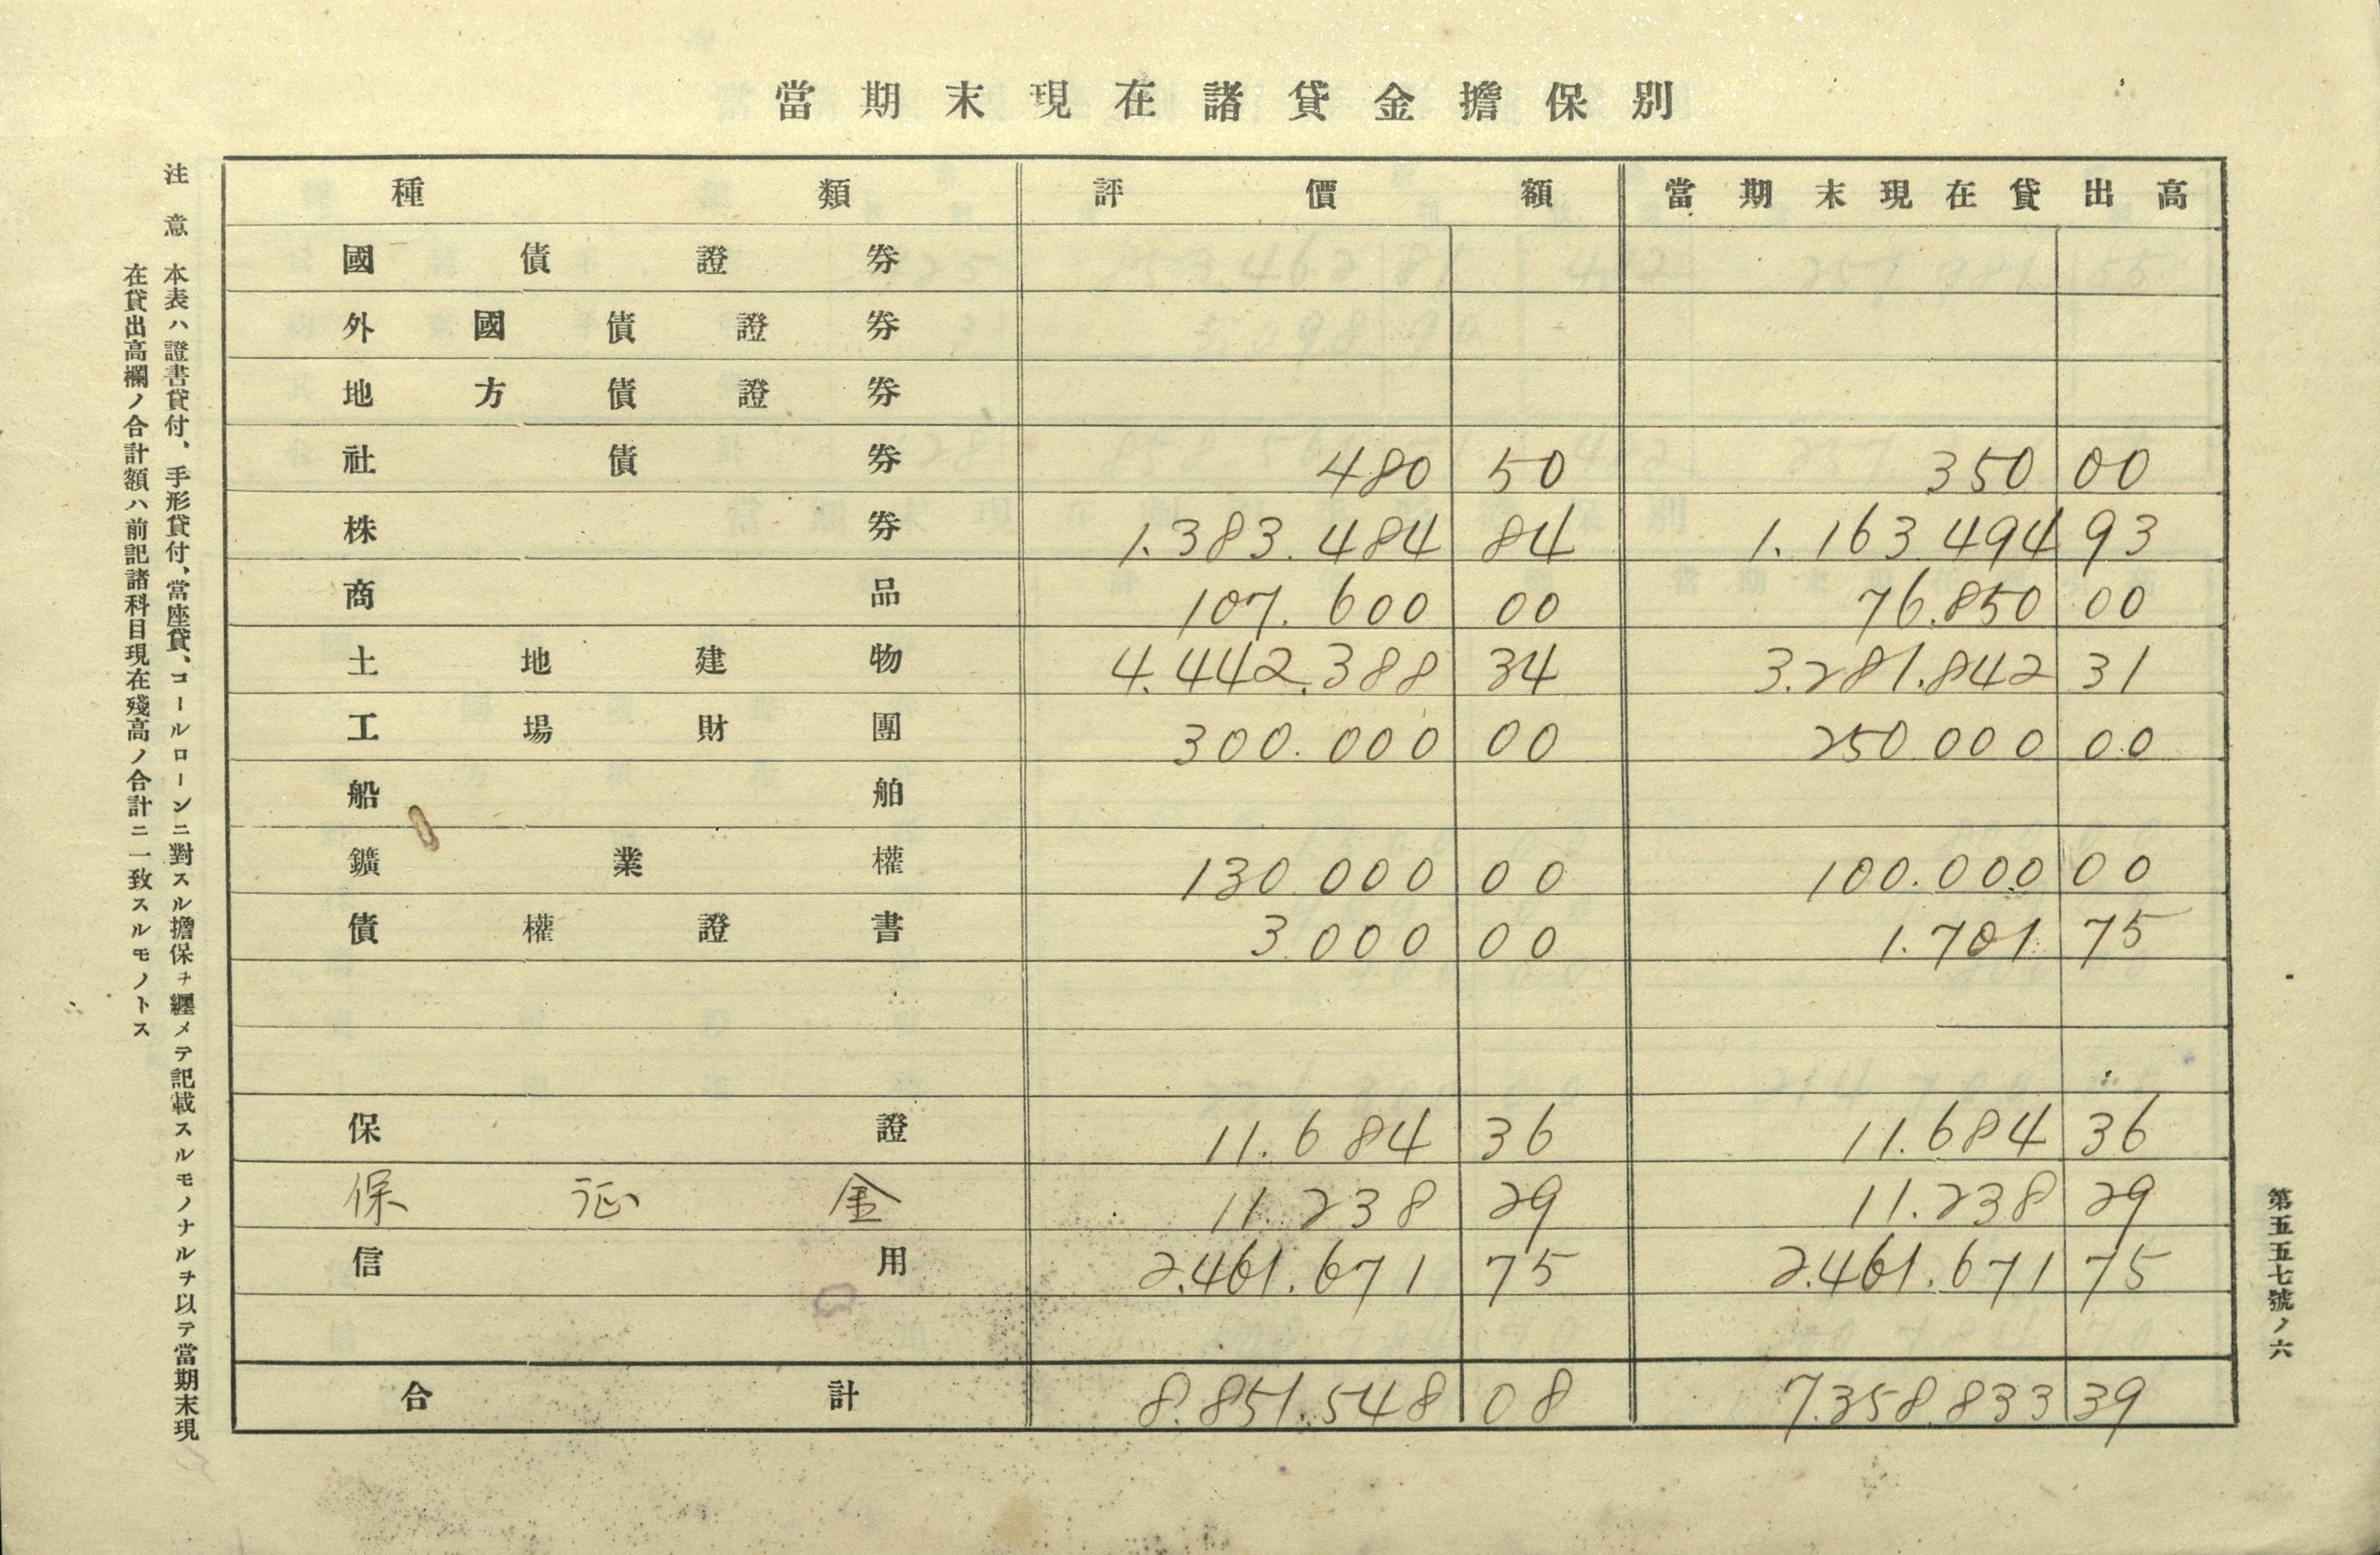 當期末現在諸貸金擔保別
種類 評價額 當期末現在貸出高
國債證券
外國債證券
地方債證券
社債券 480 50 350 00
株券 1.383.484 84 1.163.494 93
商品 107.600 00 76.850 00
土地建物 4.442.388 34 3.281.842 31
工場財團 300.000 00 250.000 00
船舶
鑛業權 130.000 00 100.000 00
債權證書 3.000 00 1.701 75
保證 11.684 36 11.684 36
保証金 11.238 29 11.238 29
信用 2.461.671 75 2.461.671 75
合計 8.851.548 08 7.358.833 39
注意 本表ハ證書貸付、手形貸付、當座貸、コールローンニ對スル擔保ヲ纒メテ記載スルモノナルヲ以テ當期末現
在貸出高欄ノ合計額ハ前記諸科目現在殘高ノ合計ニ一致スルモノトス
第五五七號ノ六